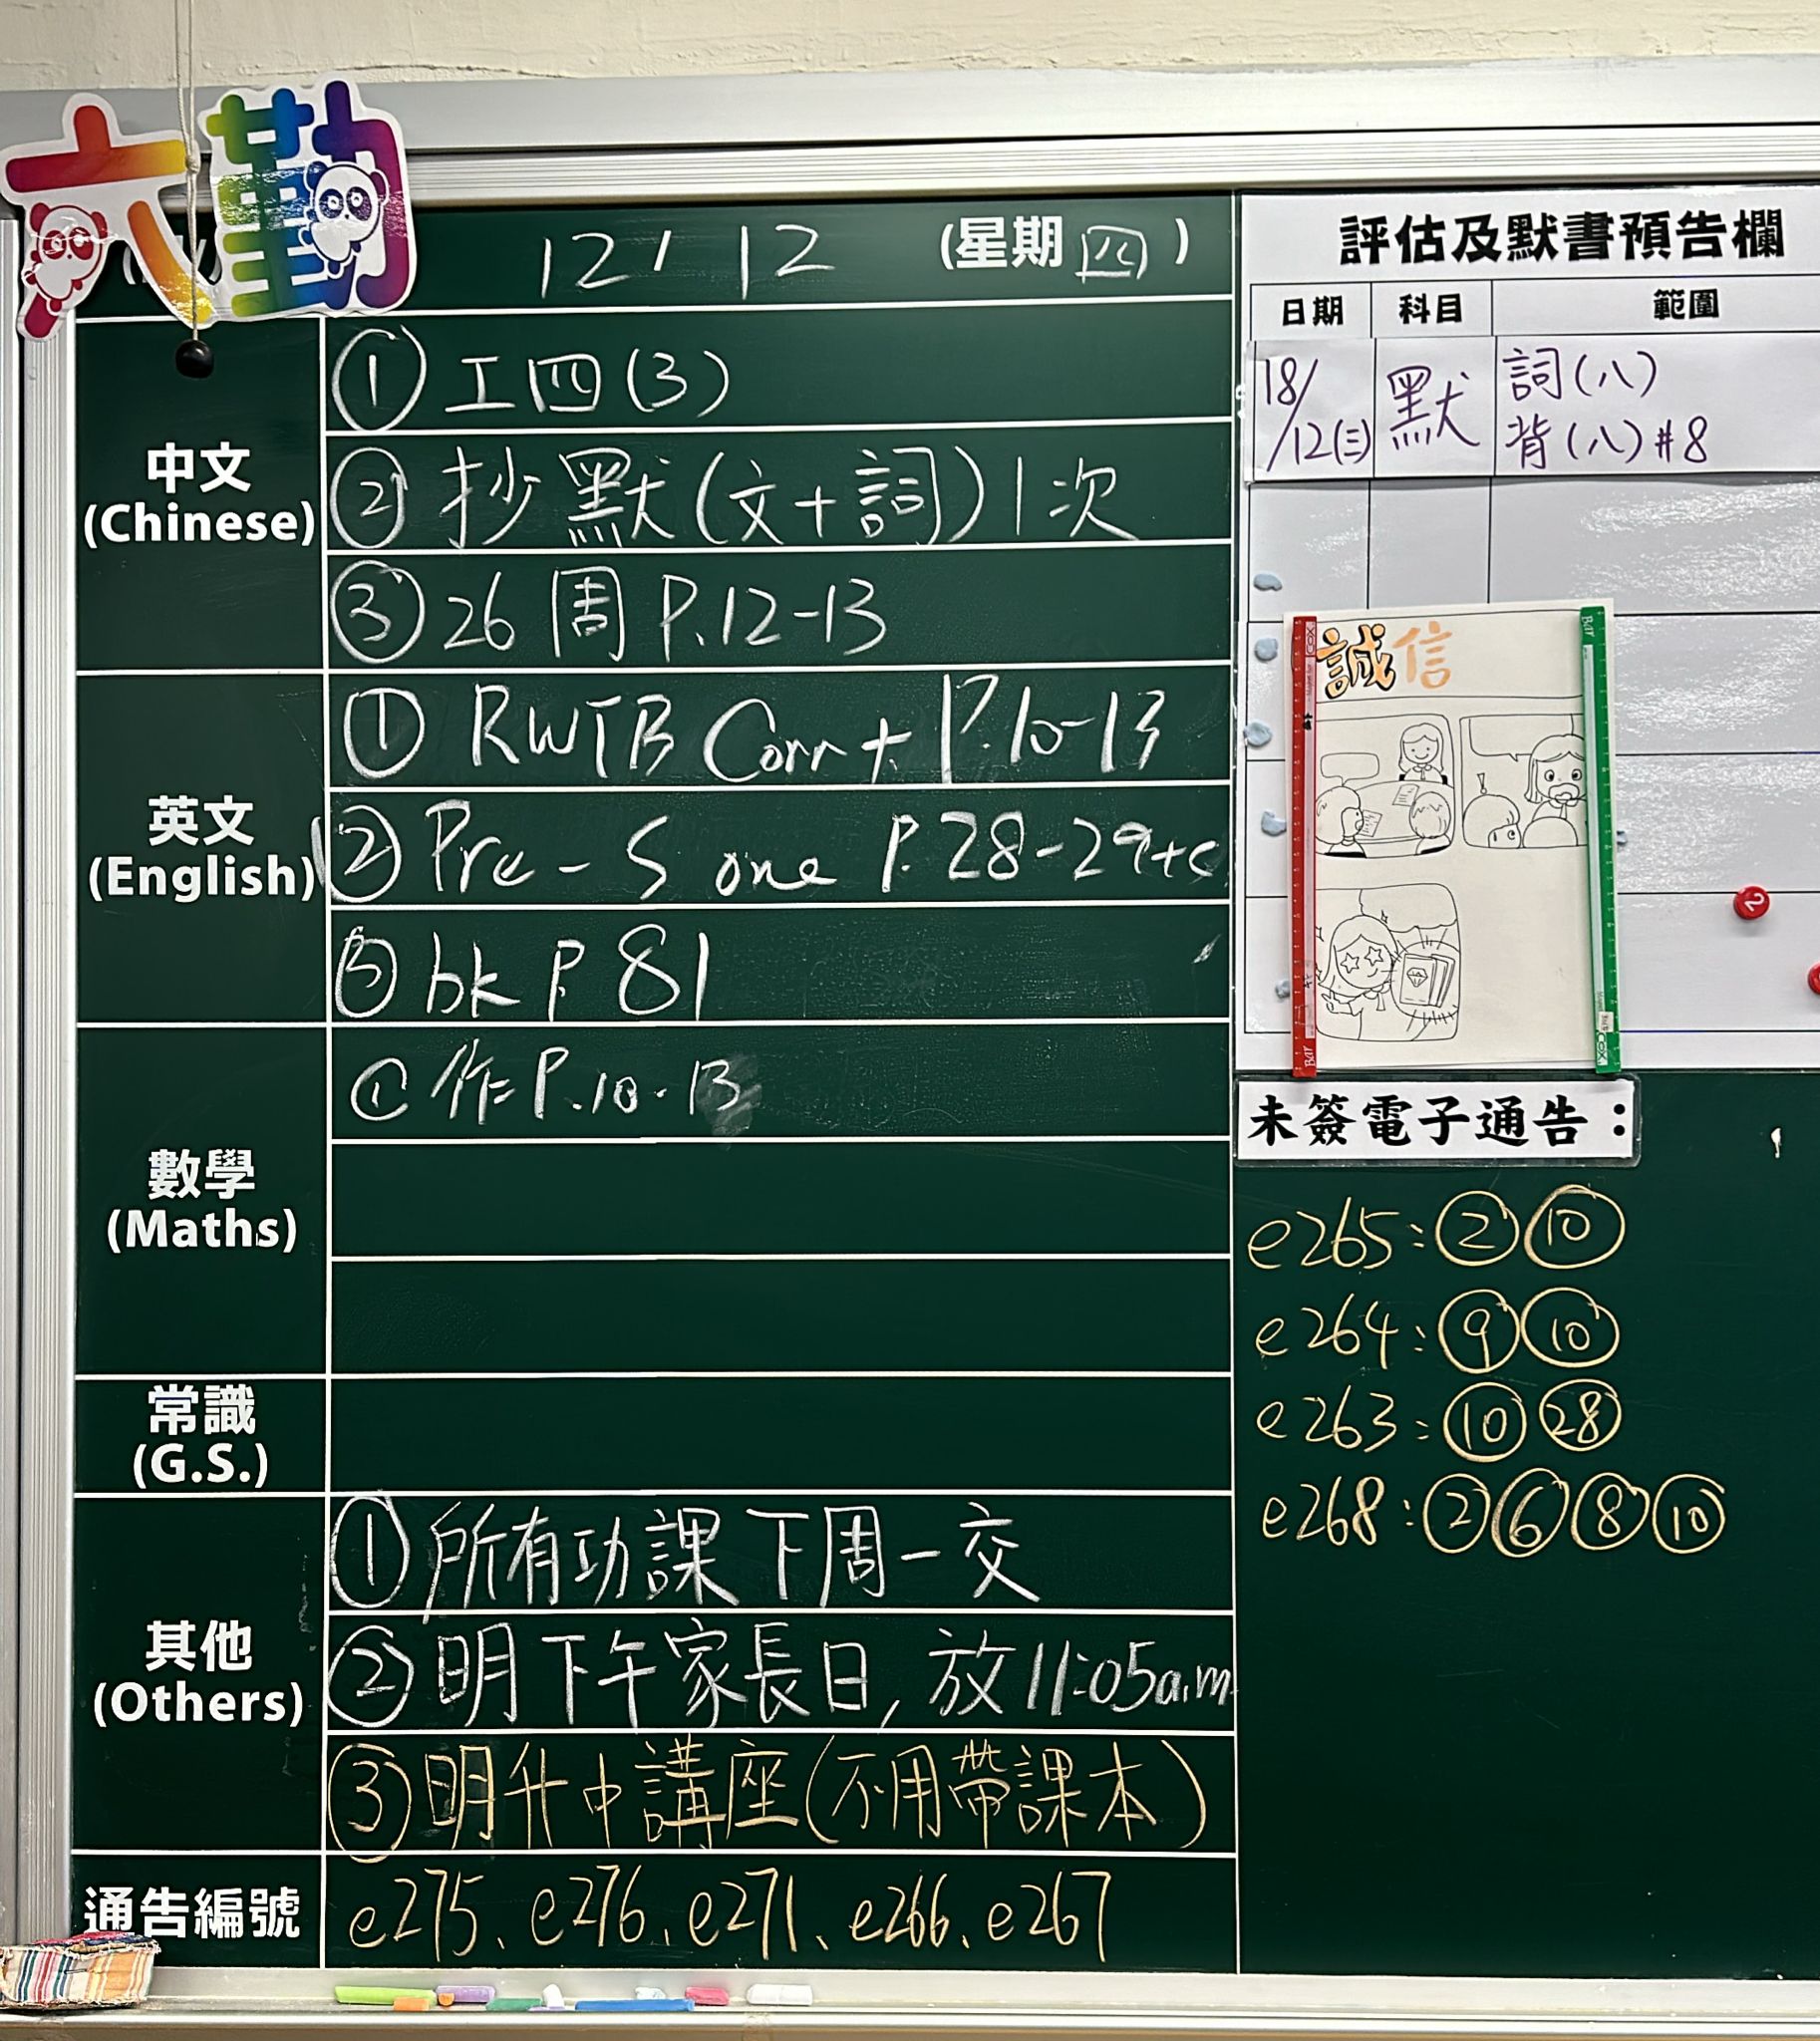 六勤
12 / 12 (星期四)
中文
(Chinese)
① 工四(3)
② 抄默(文+詞)1次
③ 26周 P.12-13
英文
(English)
① RWTB Corr + P.10-13
② Pre-S one P.28-29+c
③ bk P.81
數學
(Maths)
① 作 P.10-13
常識
(G.S.)
其他
(Others)
① 所有功課下周一交
② 明下午家長日, 放11:05a.m
③ 明升中講座(不用帶課本)
通告編號
e275、e276、e271、e266、e267
評估及默書預告欄
日期 科目 範圍
18/12(三) 默 詞(八)
背(八)#8
誠信
2
未簽電子通告：
e265: ② ⑩
e264: ⑨ ⑩
e263: ⑩ ㉘
e268: ② ⑥ ⑧ ⑩